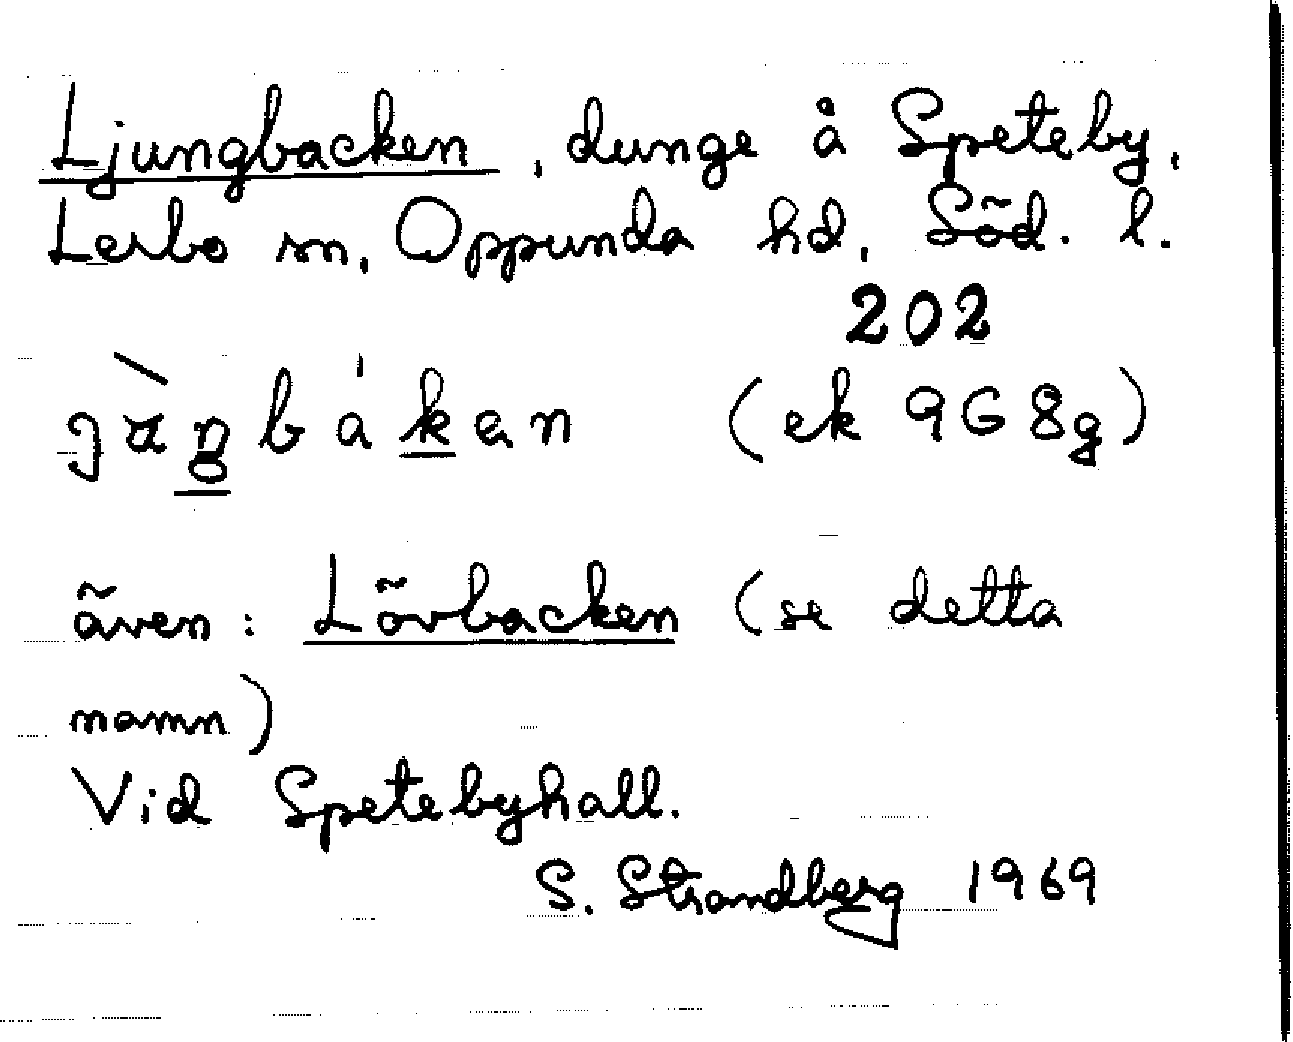 Ljungbacken, dunge å Speteby,
Lerbo sn, Oppunda hd, Söd. l.
202
(ek 9G 8g)
även: Lövbacken (se detta
namn)
Vid Spetebyhall.
S. Strandberg 1969